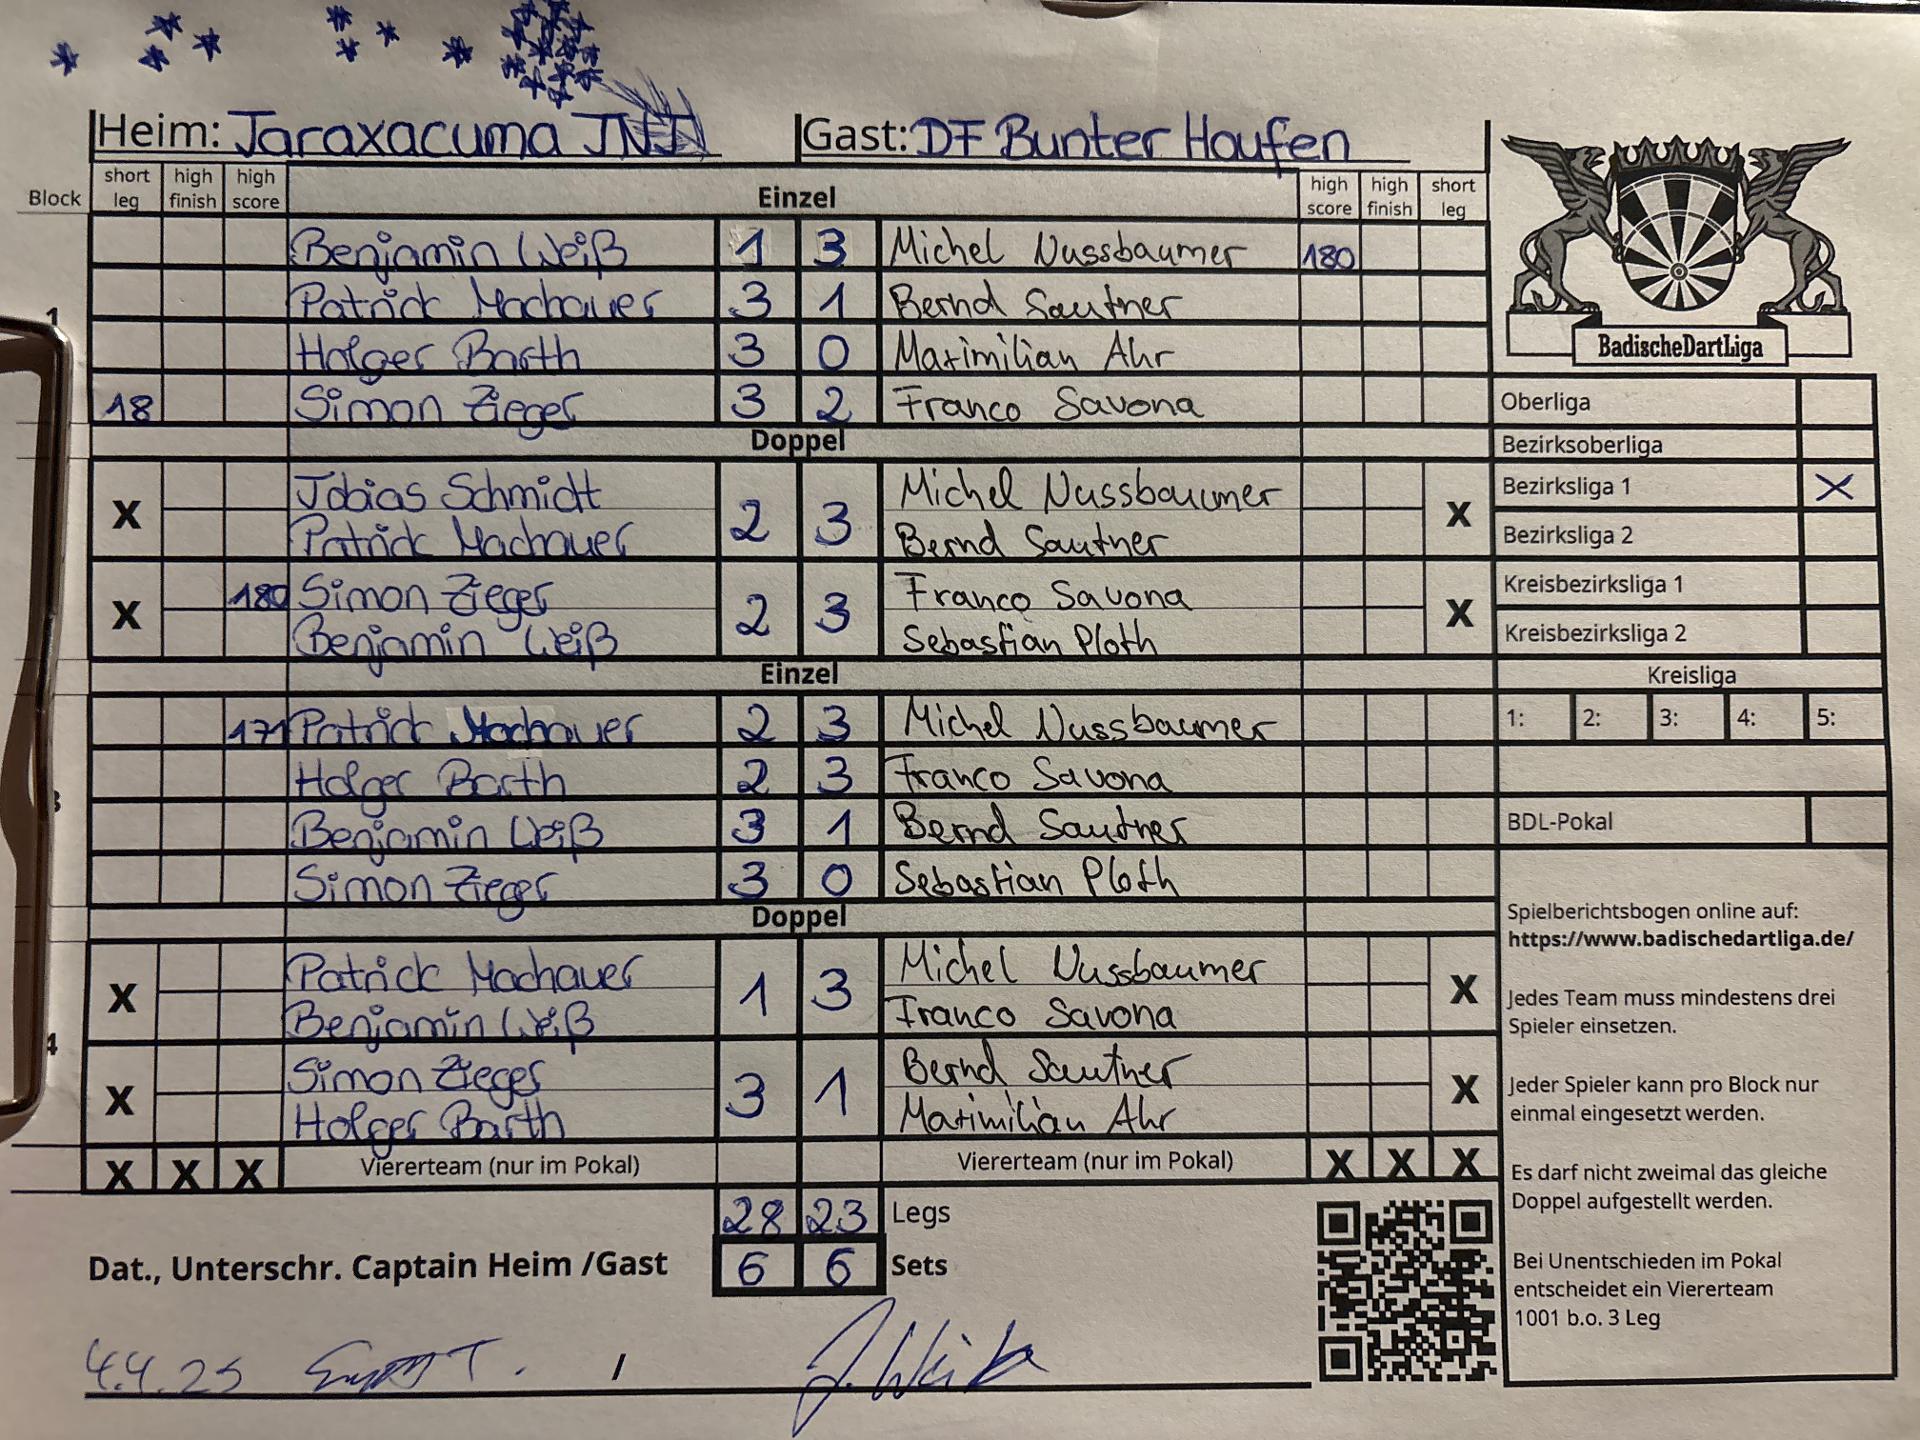 Heim: Taraxacuma TNT Gast: DF Bunter Haufen
Block short leg high finish high score Einzel high score high finish short leg
Benjamin Weiß 1 3 Michel Nussbaumer 180
1 Patrick Machauer 3 1 Bernd Sautner
Holger Barth 3 0 Maximilian Ahr
18 Simon Zieger 3 2 Franco Savona
Doppel
X Tobias Schmidt 2 3 Michel Nussbaumer X
Patrick Machauer Bernd Sautner
X 180 Simon Zieger 2 3 Franco Savona X
Benjamin Weiß Sebastian Ploth
Einzel
171 Patrick Machauer 2 3 Michel Nussbaumer
3 Holger Barth 2 3 Franco Savona
Benjamin Weiß 3 1 Bernd Sautner
Simon Zieger 3 0 Sebastian Ploth
Doppel
X Patrick Machauer 1 3 Michel Nussbaumer X
Benjamin Weiß Franco Savona
4
X Simon Zieger 3 1 Bernd Sautner X
Holger Barth Maximilian Ahr
X X X Viererteam (nur im Pokal) Viererteam (nur im Pokal) X X X
28 23 Legs
Dat., Unterschr. Captain Heim /Gast 6 6 Sets
4.4.25 /
BadischeDartLiga
Oberliga
Bezirksoberliga
Bezirksliga 1 X
Bezirksliga 2
Kreisbezirksliga 1
Kreisbezirksliga 2
Kreisliga
1: 2: 3: 4: 5:
BDL-Pokal
Spielberichtsbogen online auf:
https://www.badischedartliga.de/
Jedes Team muss mindestens drei
Spieler einsetzen.
Jeder Spieler kann pro Block nur
einmal eingesetzt werden.
Es darf nicht zweimal das gleiche
Doppel aufgestellt werden.
Bei Unentschieden im Pokal
entscheidet ein Viererteam
1001 b.o. 3 Leg